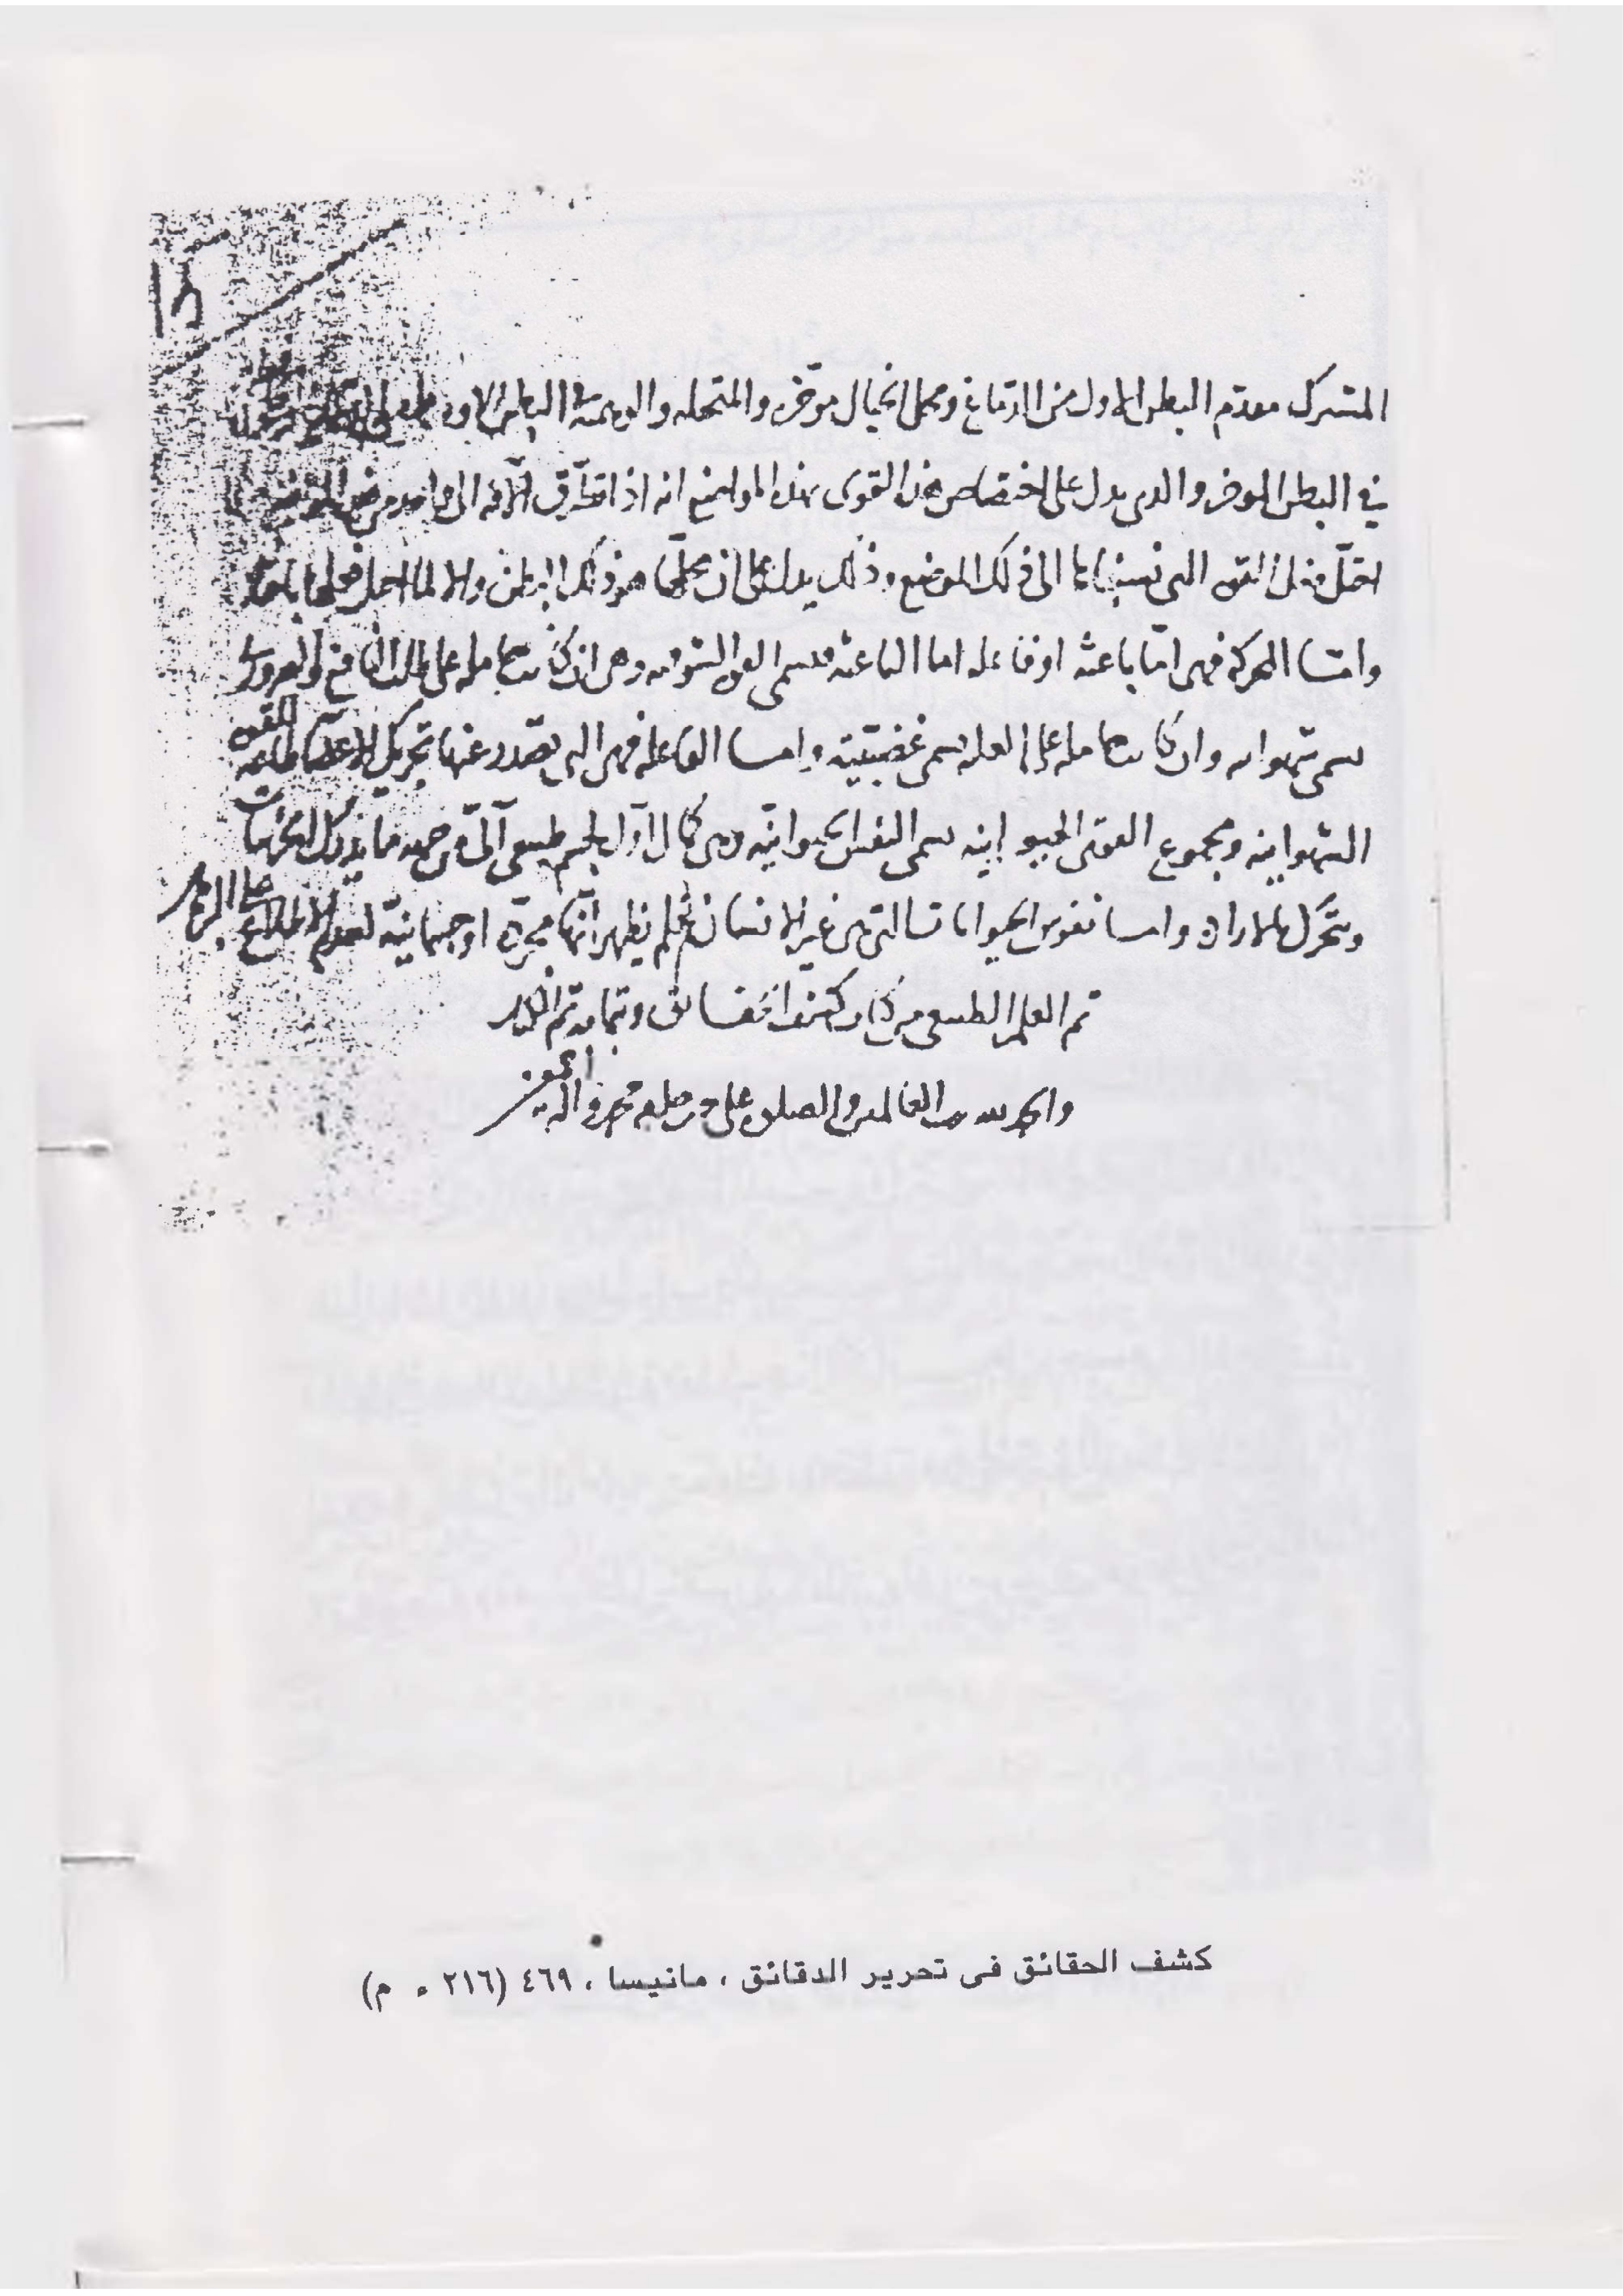 المشترك مقدم البطن الاول من الدماغ ومحل الخيال موخره والمتخيله والوهميه في البطن الاوسط
في البطن الموخر والذي يدل على اختصاص هذه القوى بهذه المواضع انه اذا تطرق الآفه الى واحد من هذه المواضع
اختل فعل القوه التي نسبناها الى ذلك الموضع وذلك يدل على ان محلها هو ذلك البطن والا لما اختل فعلها
وامّا المحركة فهى امّا باعثه او فاعله اما الباعثه فتسمى القوه الشوقيه وهى ان كانت حامله على طلب النافع والضرورى
تسمى شهوانيه وان كانت حامله على الغلبه تسمى غضبيّة وامّا الفاعله فهى التى تصدر عنها تحريك الاعضا طاعه للقوه
الشهوانيه ومجموع القوى الحيوانيه تسمى النفس الحيوانيّه وهى كمال اوّل لجسم طبيعى آلىّ من جهه ما يدرك الجزئيات
ويتحرّك بالاراده وامّا نفوس الحيوانات التى هى غير الانسان فلم يظهر انّها مجردة او جسمانيّة لعدم الاطلاع على
تم العلم الطبيعى من كتاب كشف الحقائق وبتمامه تم الكتاب
والحمد لله رب العالمين والصلوة على خير خلقه محمد وآله اجمعين
كشف الحقائق فى تحرير الدقائق ، مانيسا ، ٤٦٩ (٢١٦ ء م)